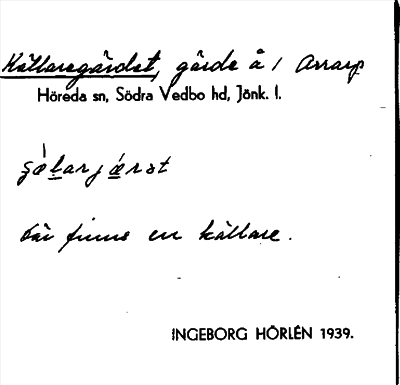 Källaregärdet, gärde å 1 Arrarp
Höreda sn, Södra Vedbo hd, Jönk. l.
där finns en källare.
INGEBORG HÖRLÉN 1939.